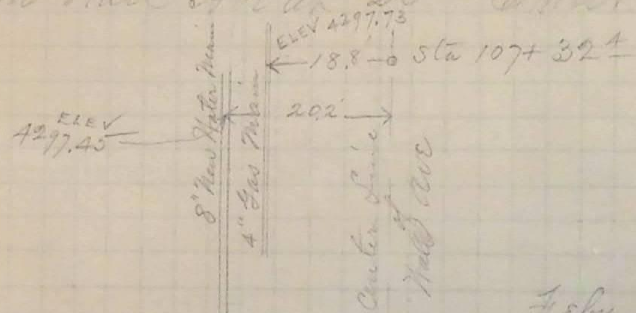 ELEV 4297.73
18.8 Sta 107+32 4
ELEV
4297.45
20.2
8" New Water Main
4" Gas Main
Center Line
of
Wall Ave